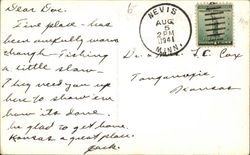 Dear Doc.
Fine place - has
been awfully warm
though - Fishing
a little slow -
They need you up
here to show em
how its done.
be glad to get home
Kansas a great place.
Jack.
NEVIS
AUG
5
2 PM
1941
MINN.
Dr.
Tonganoxie,
Kansas